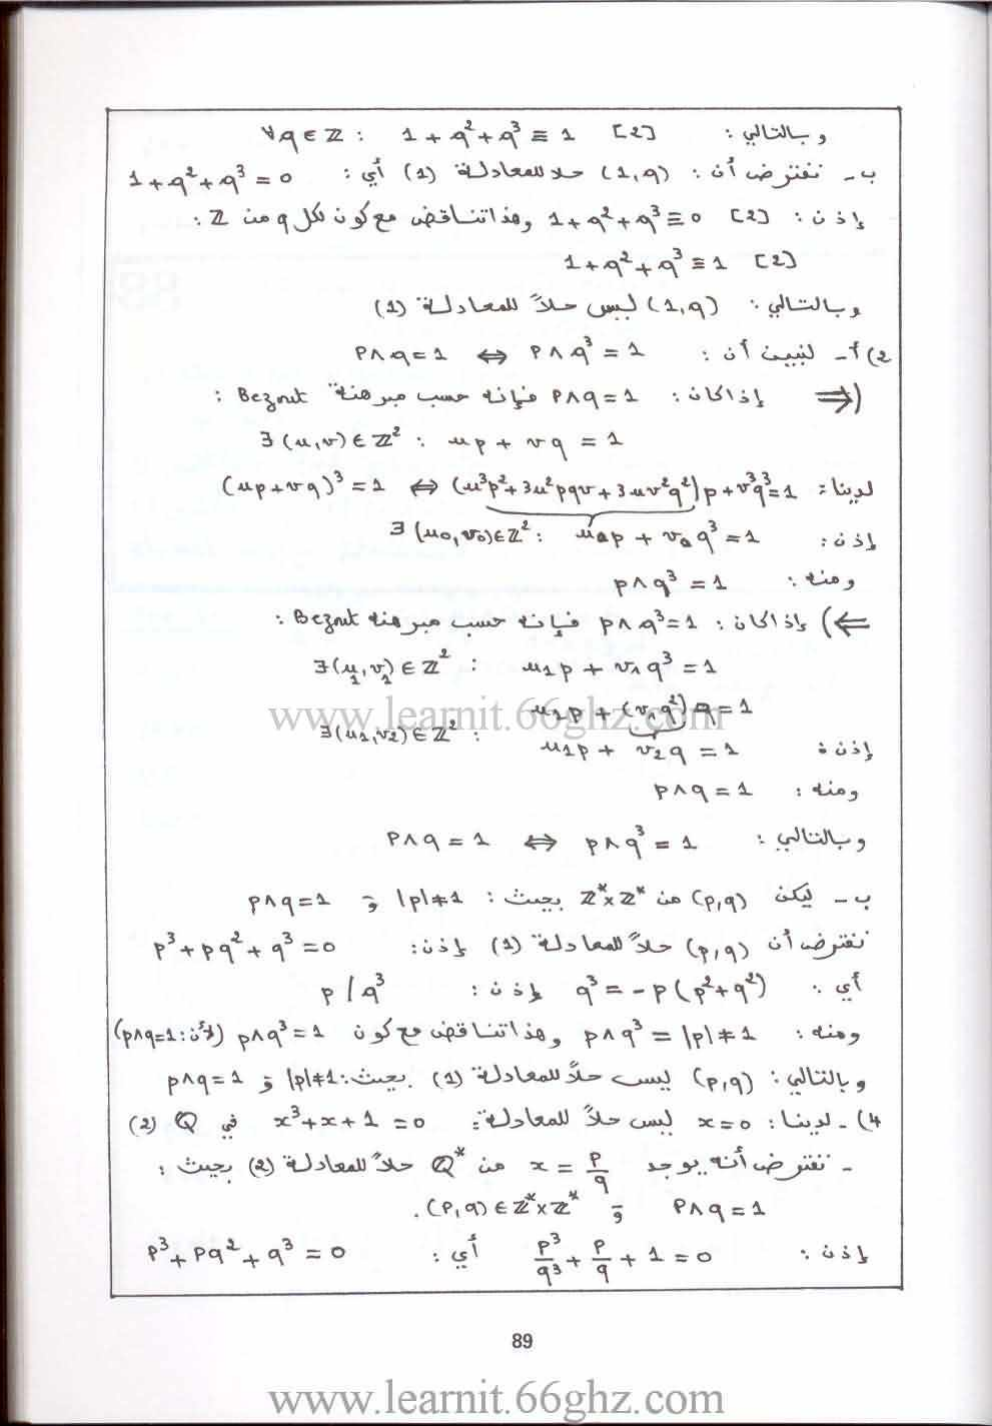 وبالتالي : ∀q ∈ ℤ : 1 + q² + q³ ≡ 1 [2]
ب - نفترض أن : (1,q) حلا للمعادلة (1) أي : 1 + q² + q³ = 0
إذن : 1 + q² + q³ ≡ 0 [2] وهذا تناقض مع كون لكل q من ℤ :
1 + q² + q³ ≡ 1 [2]
وبالتالي : (1,q) ليس حلاً للمعادلة (1)
2) أ - لنبين أن : p∧q = 1 ⇔ p∧q³ = 1
(⇒ إذا كان : p∧q = 1 فإنه حسب مبرهنة Bezout :
∃(u,v) ∈ ℤ² : up + vq = 1
لدينا : (up+vq)³ = 1 ⇔ (u³p²+3u²pqv+3uv²q²)p + v³q³ = 1
إذن : ∃(u₀,v₀)∈ℤ² : u₀p + v₀q³ = 1
ومنه : p∧q³ = 1
⇐) إذا كان : p∧q³ = 1 فإنه حسب مبرهنة Bezout :
∃(u₁,v₁) ∈ ℤ² : u₁p + v₁q³ = 1
u₁p + (v₁q²)q = 1
www.learnit.66ghz.com
إذن : ∃(u₁,v₂) ∈ ℤ² : u₁p + v₂q = 1
ومنه : p∧q = 1
وبالتالي : p∧q = 1 ⇔ p∧q³ = 1
ب - ليكن (p,q) من ℤ*×ℤ* بحيث : |p|≠1 و p∧q=1
نفترض أن (p,q) حلاً للمعادلة (1) إذن : p³ + pq² + q³ = 0
أي : q³ = -p(p²+q²) إذن : p / q³
ومنه : p∧q³ = |p| ≠ 1 وهذا تناقض مع كون p∧q³ = 1 (لأن : p∧q=1)
وبالتالي : (p,q) ليس حلاً للمعادلة (1) بحيث : |p|≠1 و p∧q = 1
4) - لدينا : x = 0 ليس حلاً للمعادلة : x³+x+1 = 0 في ℚ (2)
- نفترض أنه يوجد x = p/q من ℚ* حلاً للمعادلة (2) بحيث :
p∧q = 1 و (p,q) ∈ ℤ*×ℤ* .
إذن : p³/q³ + p/q + 1 = 0 أي : p³ + pq² + q³ = 0
89
www.learnit.66ghz.com